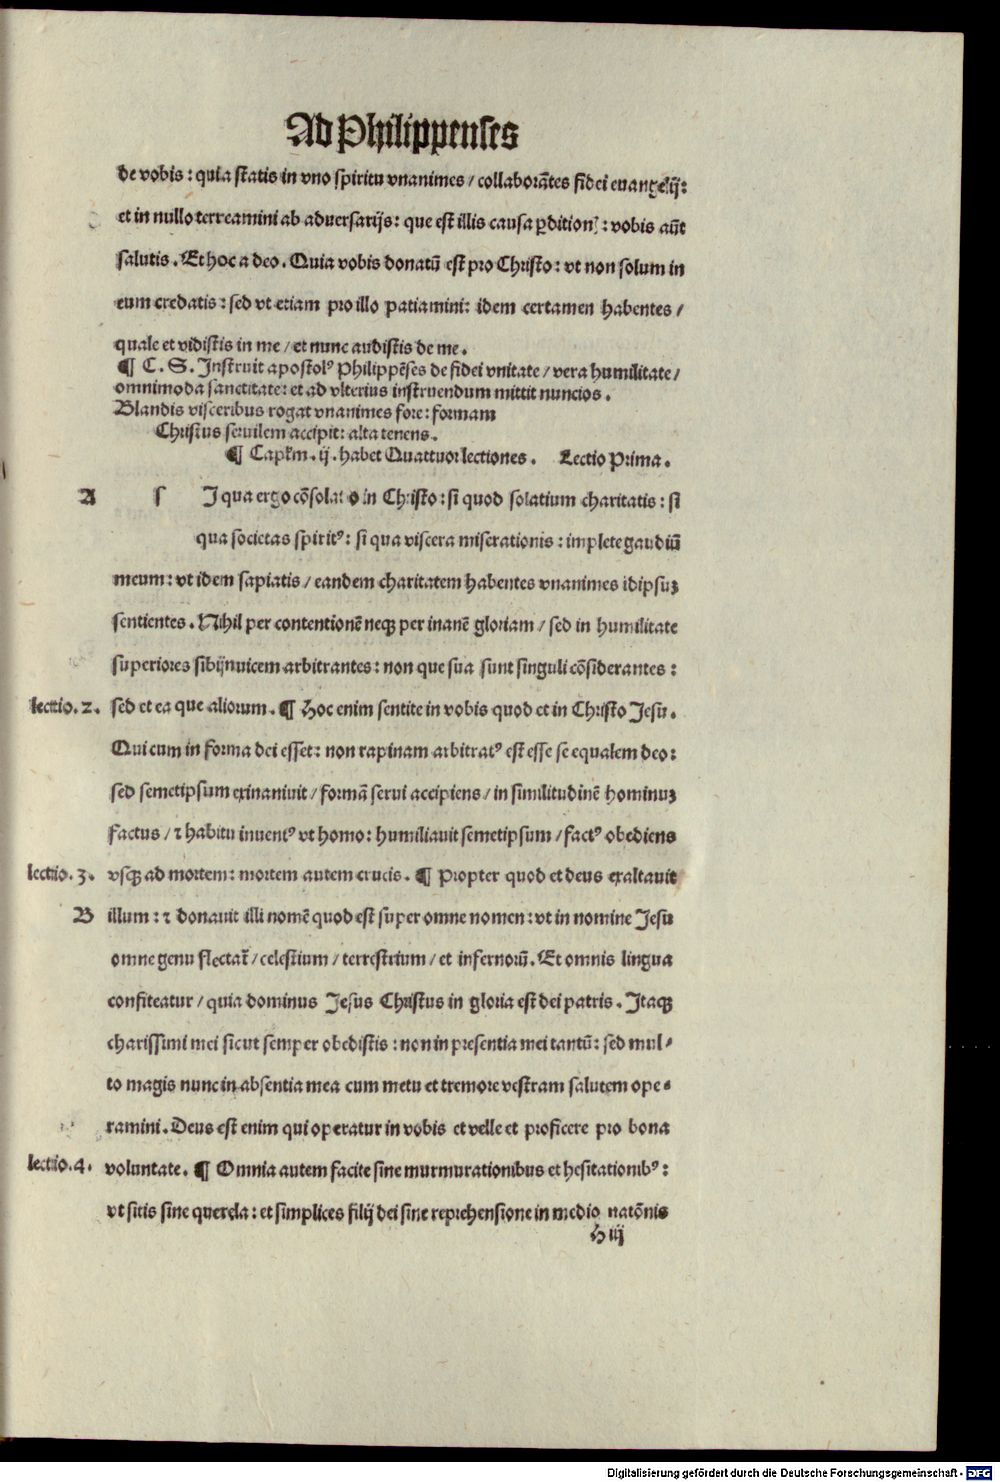 Ad Philippenses
de vobis : quia statis in vno spiritu vnanimes / collaborãtes fidei euangelij :
et in nullo terreamini ab aduersarijs : que est illis causa ꝑditionꝭ : vobis aũt
salutis . Et hoc a deo . Quia vobis donatũ est pro Christo : vt non solum in
eum credatis : sed vt etiam pro illo patiamini : idem certamen habentes /
quale et vidistis in me / et nunc audistis de me .
¶ C . S . Instruit apostolꝰ Philippẽses de fidei vnitate / vera humilitate /
omnimoda sanctitate : et ad vlterius instruendum mittit nuncios .
Blandis visceribus rogat vnanimes fore : formam
Christus seruilem accipit : alta tenens .
¶ Capłm . ij . habet Quattuor lectiones . Lectio Prima .
A s I qua ergo cõsolatio in Christo : si quod solatium charitatis : si
qua societas spiritꝰ : si qua viscera miserationis : implete gaudiũ
meum : vt idem sapiatis / eandem charitatem habentes vnanimes idipsuꝫ
sentientes . Nihil per contentionẽ neqꝫ per inanẽ gloriam / sed in humilitate
superiores sibijnuicem arbitrantes : non que sua sunt singuli cõsiderantes :
lectio . 2 . sed et ea que aliorum . ¶ Hoc enim sentite in vobis quod et in Christo Jesu .
Qui cum in forma dei esset : non rapinam arbitratꝰ est esse se equalem deo :
sed semetipsum exinaniuit / formã serui accipiens / in similitudinẽ hominuꝫ
factus / ⁊ habitu inuentꝰ vt homo : humiliauit semetipsum / factꝰ obediens
lectio . 3 . vsqꝫ ad mortem : mortem autem crucis . ¶ Propter quod et deus exaltauit
B illum : ⁊ donauit illi nomẽ quod est super omne nomen : vt in nomine Jesu
omne genu flectat̃ / celestium / terrestrium / et infernorũ . Et omnis lingua
confiteatur / quia dominus Jesus Christus in gloria est dei patris . Itaqꝫ
charissimi mei sicut semper obedistis : non in presentia mei tantũ : sed mul-
to magis nunc in absentia mea cum metu et tremore vestram salutem ope-
ramini . Deus est enim qui operatur in vobis et velle et proficere pro bona
lectio . 4 . voluntate . ¶ Omnia autem facite sine murmurationibus et hesitationibꝰ :
vt sitis sine querela : et simplices filij dei sine reprehensione in medio natõnis
H iij
Digitalisierung gefördert durch die Deutsche Forschungsgemeinschaft - DFG